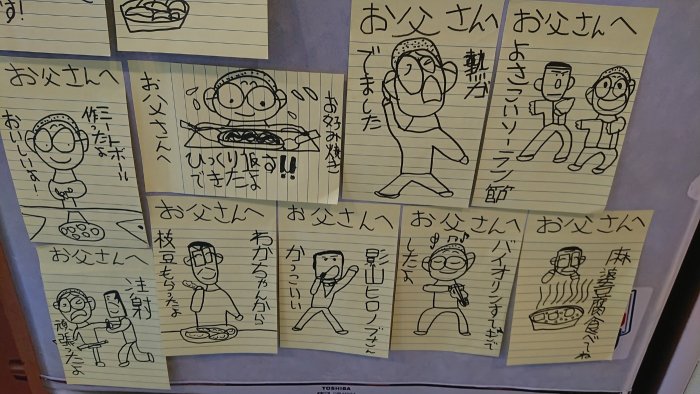 す!
お父さんへ
熱が
でました
お父さんへ
よさこいソーラン節
お父さんへ
ミートボール
作ったよ
おいしいよー!
お父さんへ
お好み焼き
ひっくり返す!!
できたよ
お父さんへ
注射
頑張ったよ
お父さんへ
わかちゃんから
枝豆もらったよ
お父さんへ
影山ヒロノブさん
かっこいい
お父さんへ
バイオリンすてきで
したよ
お父さんへ
麻婆豆腐食べてね
TOSHIBA